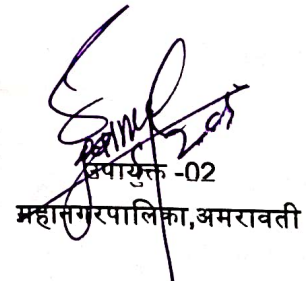 उपायुक्त -02
महानगरपालिका,अमरावती